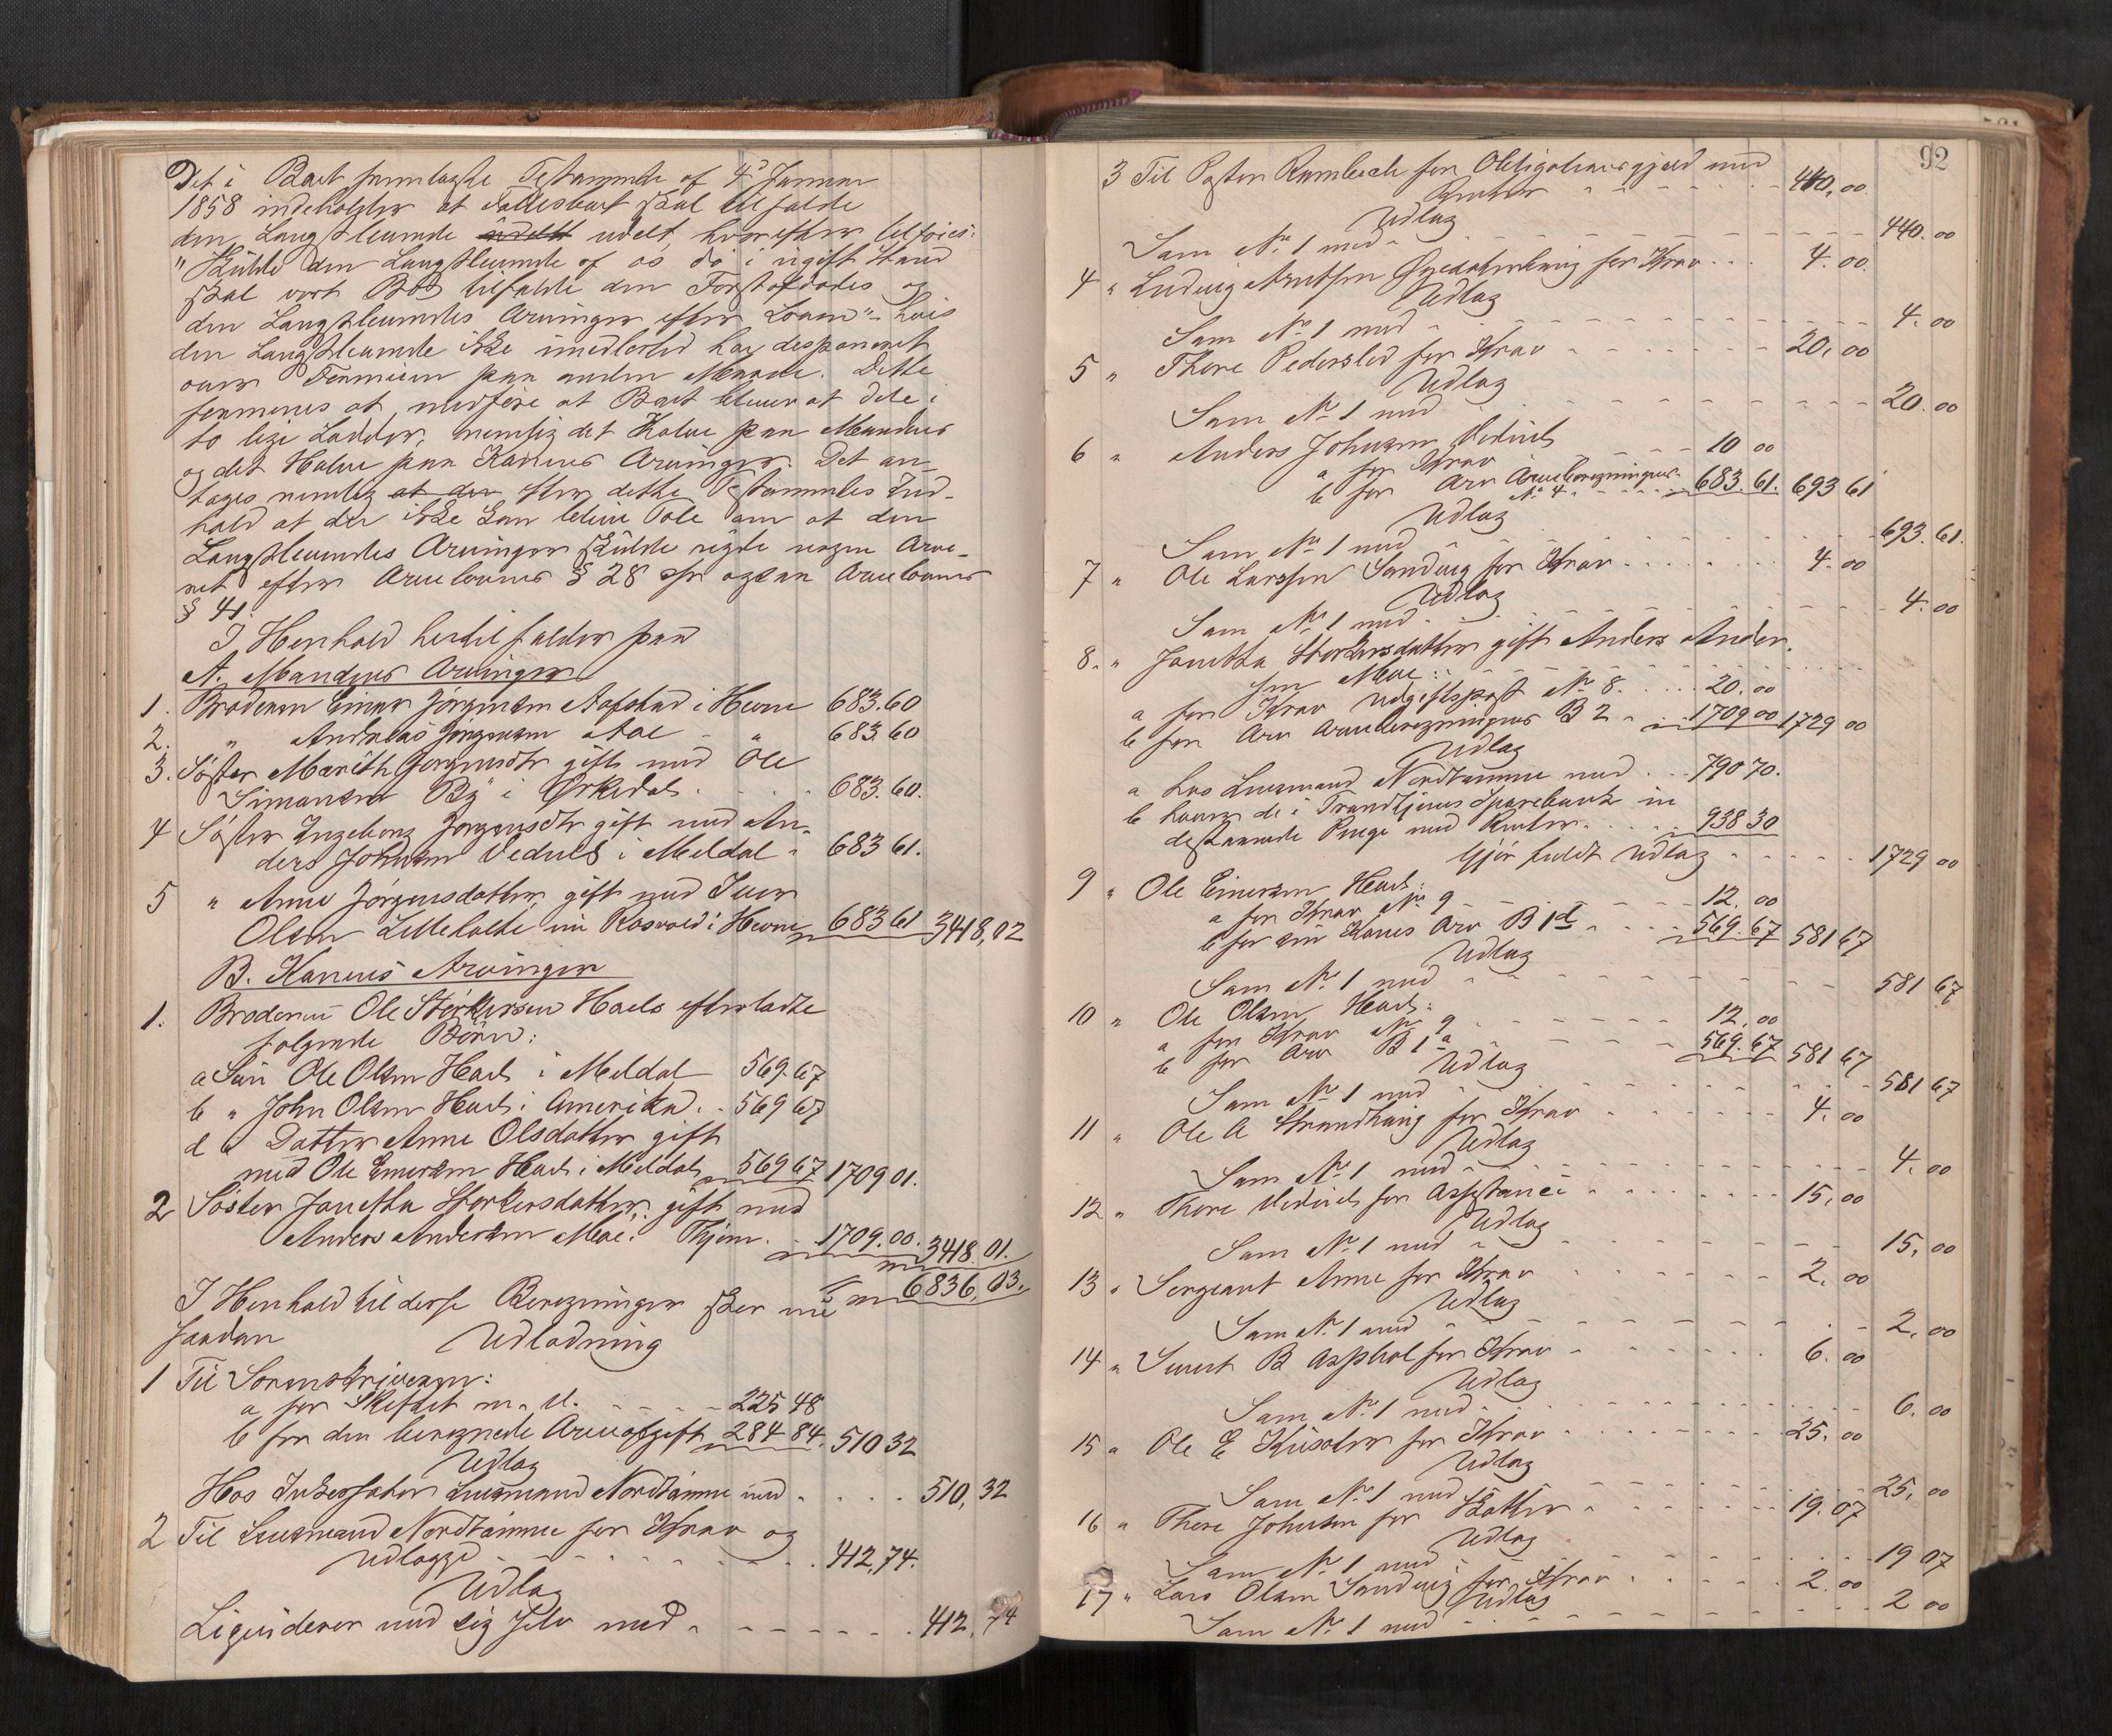 Det i Boet fremlagte Testamente af 4de Januar
1858 indeholder at Fællesboet skal tilfalde
den Længstlevende udelt udelt, hvorefter tilføies:
"Skulde den Længstlevende af os dø i ugift Stand
skal vort Bo tilfalde den Førstafdødes og
den Længstlevendes Arvinger efter Loven" – hvis
den Længstlevende ikke imidlertid har desponeret
over Formuen paa anden Maade. Dette
formenes at medføre at Boet bliver at dele i
to lige Lodder, nemlig det Halve paa Mandens
og det Halve paa Konens Arvinger. Det an-
tages nemlig at der efter dette Testamentes Ind-
hold at der ikke kan blive Tale om at den
Længstlevendes Arvinger skulde nyde nogen Arve-
ret efter Arvelovens § 28 cfr ogsaa Arvelovens
§ 41.
I Henhold hertil falder paa
A. Mandens Arvinger
1. Broderen Einar Jørgensen Aafstad i Hevne 683.60
2. " Andreas Jørgensen Aae - " 683.60
3. Søster Marith Jørgensdtr gift med Ole
Simonsen By i Ørkedal . . . . 683.60.
4 Søster Ingeborg Jørgensdtr gift med An-
ders Johnsen Veduls i Meldal - 683 61.
5 " Anne Jørgensdatter, gift med Iver
Olsen Lilleholte nu Rosvold i Hevne 683 61 3418,02
B. Konens Arvinger
1. Broderen Ole Størkersen Hoels efterladte
følgende Börn:
a Søn Ole Olsen Hoel i Meldal 569.67
b " John Olsen Hoel i Amerika . - 569 67
d " Datter Anne Olsdatter gift
med Ole Einersen Hoel i Meldal 569 67 1709 01.
2 Søster Jonetta Størkersdatter, gift med
Anders Andersen Moe i . - 1709.00. 3418.01.
6836,03.
I Henhold til disse Beregninger sker nu
saadan Udlodning
1 Til Sorenskriveren:
a for Skiftet m. v. - - - - 225 48
b for den beregnede Arveafgift 284 84. 510 32
Udlæg
Hos Inkassator Lensmand Nordtømme med - . . . . 510,32
2 Til Lensmand Nordtømme for Krav og
Udlægge - - - - - - - . . 412,74.
Udlæg
Liqviderer med sig selv med - - - - - - - . 412,74
92
3 Til Pastor Rambech for Obligationsgjæld med
Renter - - - - - - - 440,00.
Udlæg
Sam No 1 med - - - - - - - 440.00
4 " Ludvig Arntsen for Krav . . . 4.00.
Udlæg
Sam No 1 med - - - - - - - 4.00
5 " Thore Pedersled for Krav - - - - - - 20,00
Udlæg
Sam No 1 med - - - - - - - 20.00
6 " Anders Johnsen Veduls
a for Krav - - - 10 00
b for Arv Arveberegningens
No 4 - - - - - 683.61. 693 61
Udlæg
Sam No 1 med - - - - - - - 693.61.
7 " Ole Larssen Sandvig for Krav . . . . . . . 4.00
Udlæg
Sam No 1 med - - - - - - - 4.00
8. " Jonetta Størkersdatter gift Anders Ander-
sen Moe:
a for Krav Udgiftspost No 8. . . . . 20.00
b for Arv Arveberegningens B 2 - . . 1709 00 1729 00
Udlæg
a hos Lensmand Nordtømme med . - . 790 70.
b hvorm de i Trondhjems Sparebank in
destaaende Penge med Renter. . . . . 938 30
Gjør fuldt Udlæg - - - - - 1729 00
9 " Ole Einersen Hoel:
a for Krav No 9 - - - - - - 12.00
b for sin Kones Arv B 1 d - . . . . 569.67 581 67
Udlæg
Sam No 1 med - - - - - - - 581 67
10 " Ole Olsen Hoel:
a for Krav No 9 . - - - - - 12.00
b for Arv B 1 a - - - - - 569.67 581 67
Udlæg
Sam No 1 med - - - - - - - 581 67
11 " Ole A Strandhaug for Krav - - - - - - 4.00
Udlæg
Sam No 1 med - - - - - - - 4.00
12 " Thore Veduls for Assistance - . . . . . . . 15,00
Udlæg
Sam No 1 med - - - - - - - 15,00
13 " Sergeant Anne for Krav - - - - - - 2.00
Udlæg
Sam No 1 med - - - - - - - 2.00
14 " Sivert B Aspbol for Krav - - - - - 6.00
Udlæg
Sam No 1 med - - - - - - - 6.00
15 " Ole E for Krav - - - - - - 25.00
Udlæg
Sam No 1 med - - - - - - - 25.00
16 " Thore Johnsen for Skatter - - - - - - 19.07
Udlæg
Sam No 1 med - - - - - - - 19 07
17 " Lars Olsen Sandvig for Krav . . . . . 2.00
Udlæg
Sam No 1 med - - - - - - - 2 00